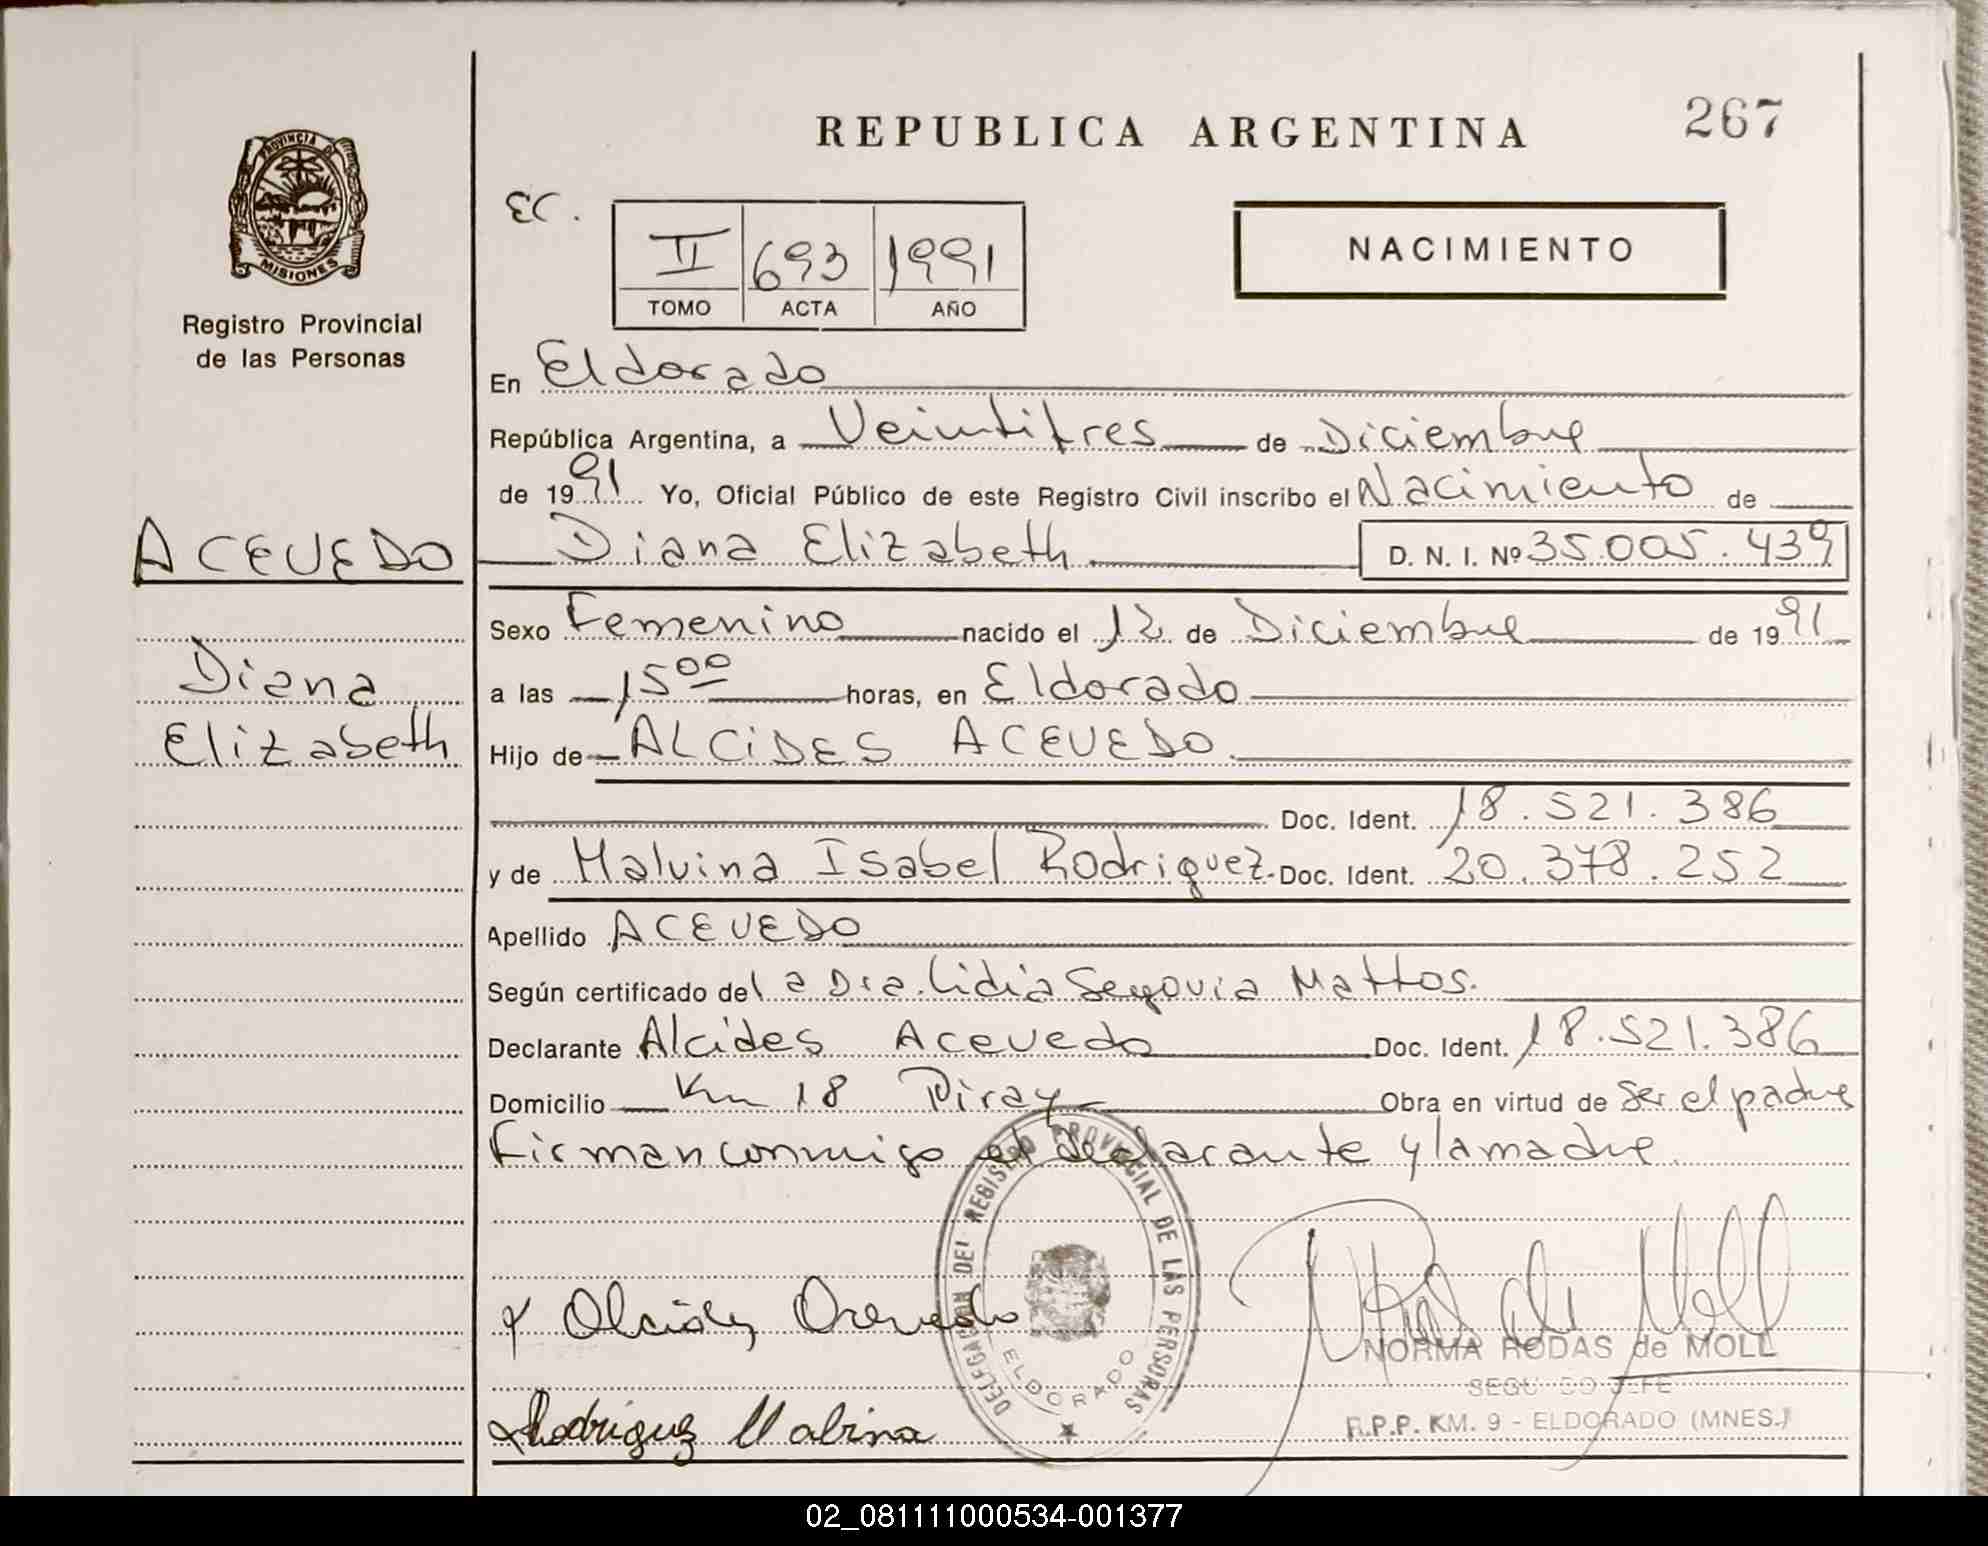 REPUBLICA ARGENTINA
267
PROVINCIA DE
MISIONES
Registro Provincial
de las Personas
EC.
II 693 1991
TOMO ACTA AÑO
NACIMIENTO
En Eldorado
República Argentina, a Veintitres de Diciembre
de 1991 Yo, Oficial Público de este Registro Civil inscribo el Nacimiento de
ACEVEDO
Diana Elizabeth D. N. I. Nº 35.005.439
Sexo Femenino nacido el 12 de Diciembre de 1991
Diana
a las 15 00 horas, en Eldorado
Elizabeth
Hijo de ALCIDES ACEVEDO
Doc. Ident. 18.521.386
y de Malvina Isabel Rodriguez Doc. Ident. 20.378.252
Apellido ACEVEDO
Según certificado de la Dra. Lidia Segovia Mattos.
Declarante Alcides Acevedo Doc. Ident. 18.521.386
Domicilio Km 18 Piray Obra en virtud de ser el padre
Firman conmigo el declarante y la madre.
DELEGACION DEL REGISTRO PROVINCIAL DE LAS PERSONAS
ELDORADO
Alcides Acevedo
NORMA RODAS de MOLL
SEGUNDO JEFE
R.P.P. KM. 9 - ELDORADO (MNES.)
Rodriguez Malvina
02_081111000534-001377